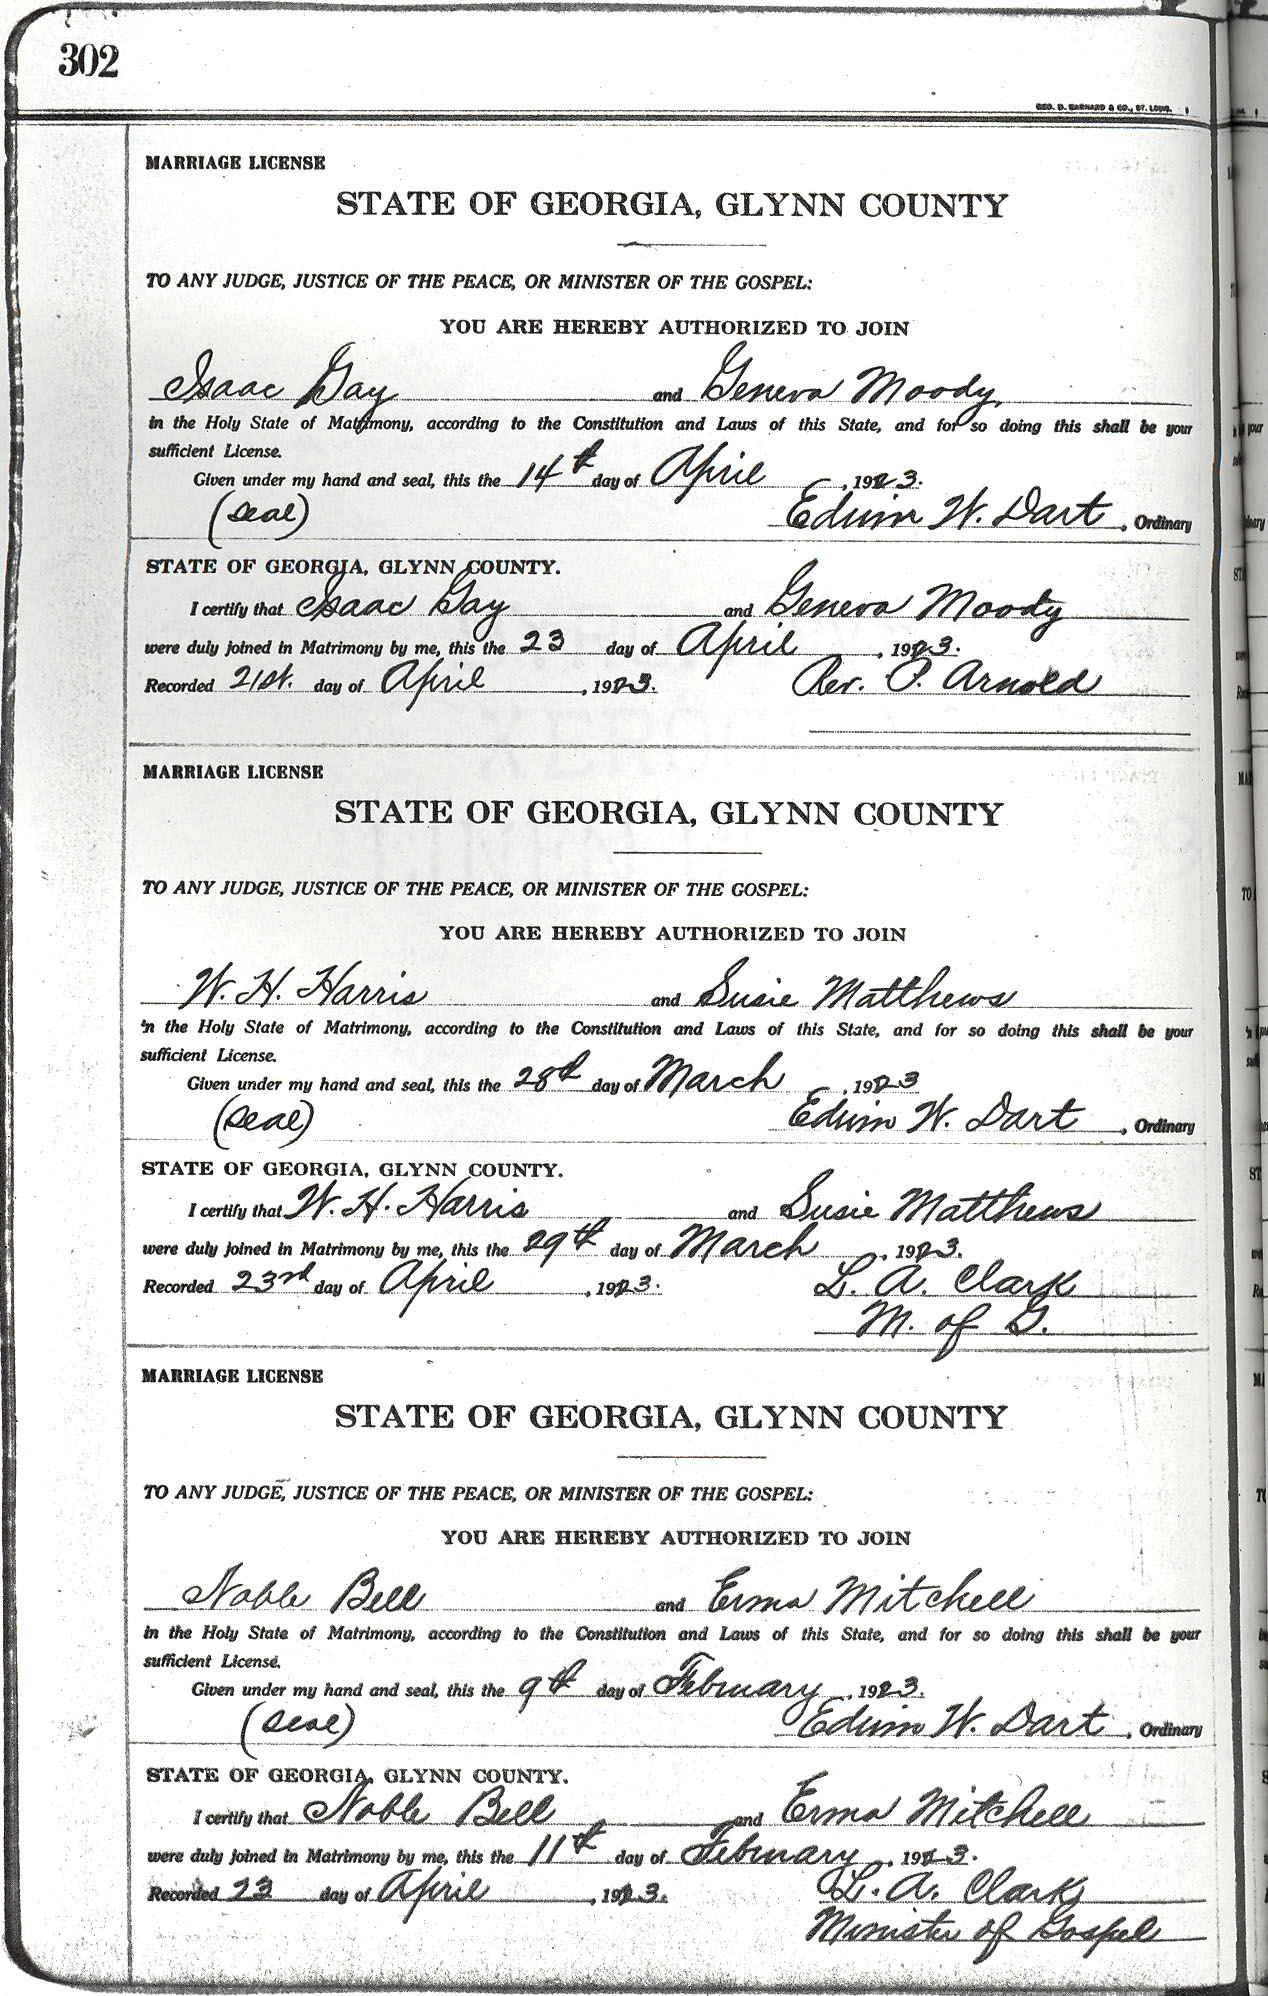 302
GEO. D. BARNARD & CO., ST. LOUIS.
MARRIAGE LICENSE
STATE OF GEORGIA, GLYNN COUNTY
TO ANY JUDGE, JUSTICE OF THE PEACE, OR MINISTER OF THE GOSPEL:
YOU ARE HEREBY AUTHORIZED TO JOIN
Isaac Gay and Geneva Moody
in the Holy State of Matrimony, according to the Constitution and Laws of this State, and for so doing this shall be your
sufficient License.
Given under my hand and seal, this the 14th day of April, 1923.
(seal) Edwin W. Dart, Ordinary
STATE OF GEORGIA, GLYNN COUNTY.
I certify that Isaac Gay and Geneva Moody
were duly joined in Matrimony by me, this the 23 day of April, 1923.
Recorded 21st. day of April, 1923. Rev. P. Arnold
MARRIAGE LICENSE
STATE OF GEORGIA, GLYNN COUNTY
TO ANY JUDGE, JUSTICE OF THE PEACE, OR MINISTER OF THE GOSPEL:
YOU ARE HEREBY AUTHORIZED TO JOIN
W. H. Harris and Susie Matthews
in the Holy State of Matrimony, according to the Constitution and Laws of this State, and for so doing this shall be your
sufficient License.
Given under my hand and seal, this the 28th day of March, 1923
(seal) Edwin W. Dart, Ordinary
STATE OF GEORGIA, GLYNN COUNTY.
I certify that W. H. Harris and Susie Matthews
were duly joined in Matrimony by me, this the 29th day of March, 1923.
Recorded 23rd day of April, 1923. L. A. Clark
M. of G.
MARRIAGE LICENSE
STATE OF GEORGIA, GLYNN COUNTY
TO ANY JUDGE, JUSTICE OF THE PEACE, OR MINISTER OF THE GOSPEL:
YOU ARE HEREBY AUTHORIZED TO JOIN
Noble Bell and Erma Mitchell
in the Holy State of Matrimony, according to the Constitution and Laws of this State, and for so doing this shall be your
sufficient License.
Given under my hand and seal, this the 9th day of February, 1923.
(seal) Edwin W. Dart, Ordinary
STATE OF GEORGIA, GLYNN COUNTY.
I certify that Noble Bell and Erma Mitchell
were duly joined in Matrimony by me, this the 11th day of February, 1923.
Recorded 23 day of April, 1923. L. A. Clark
Minister of Gospel